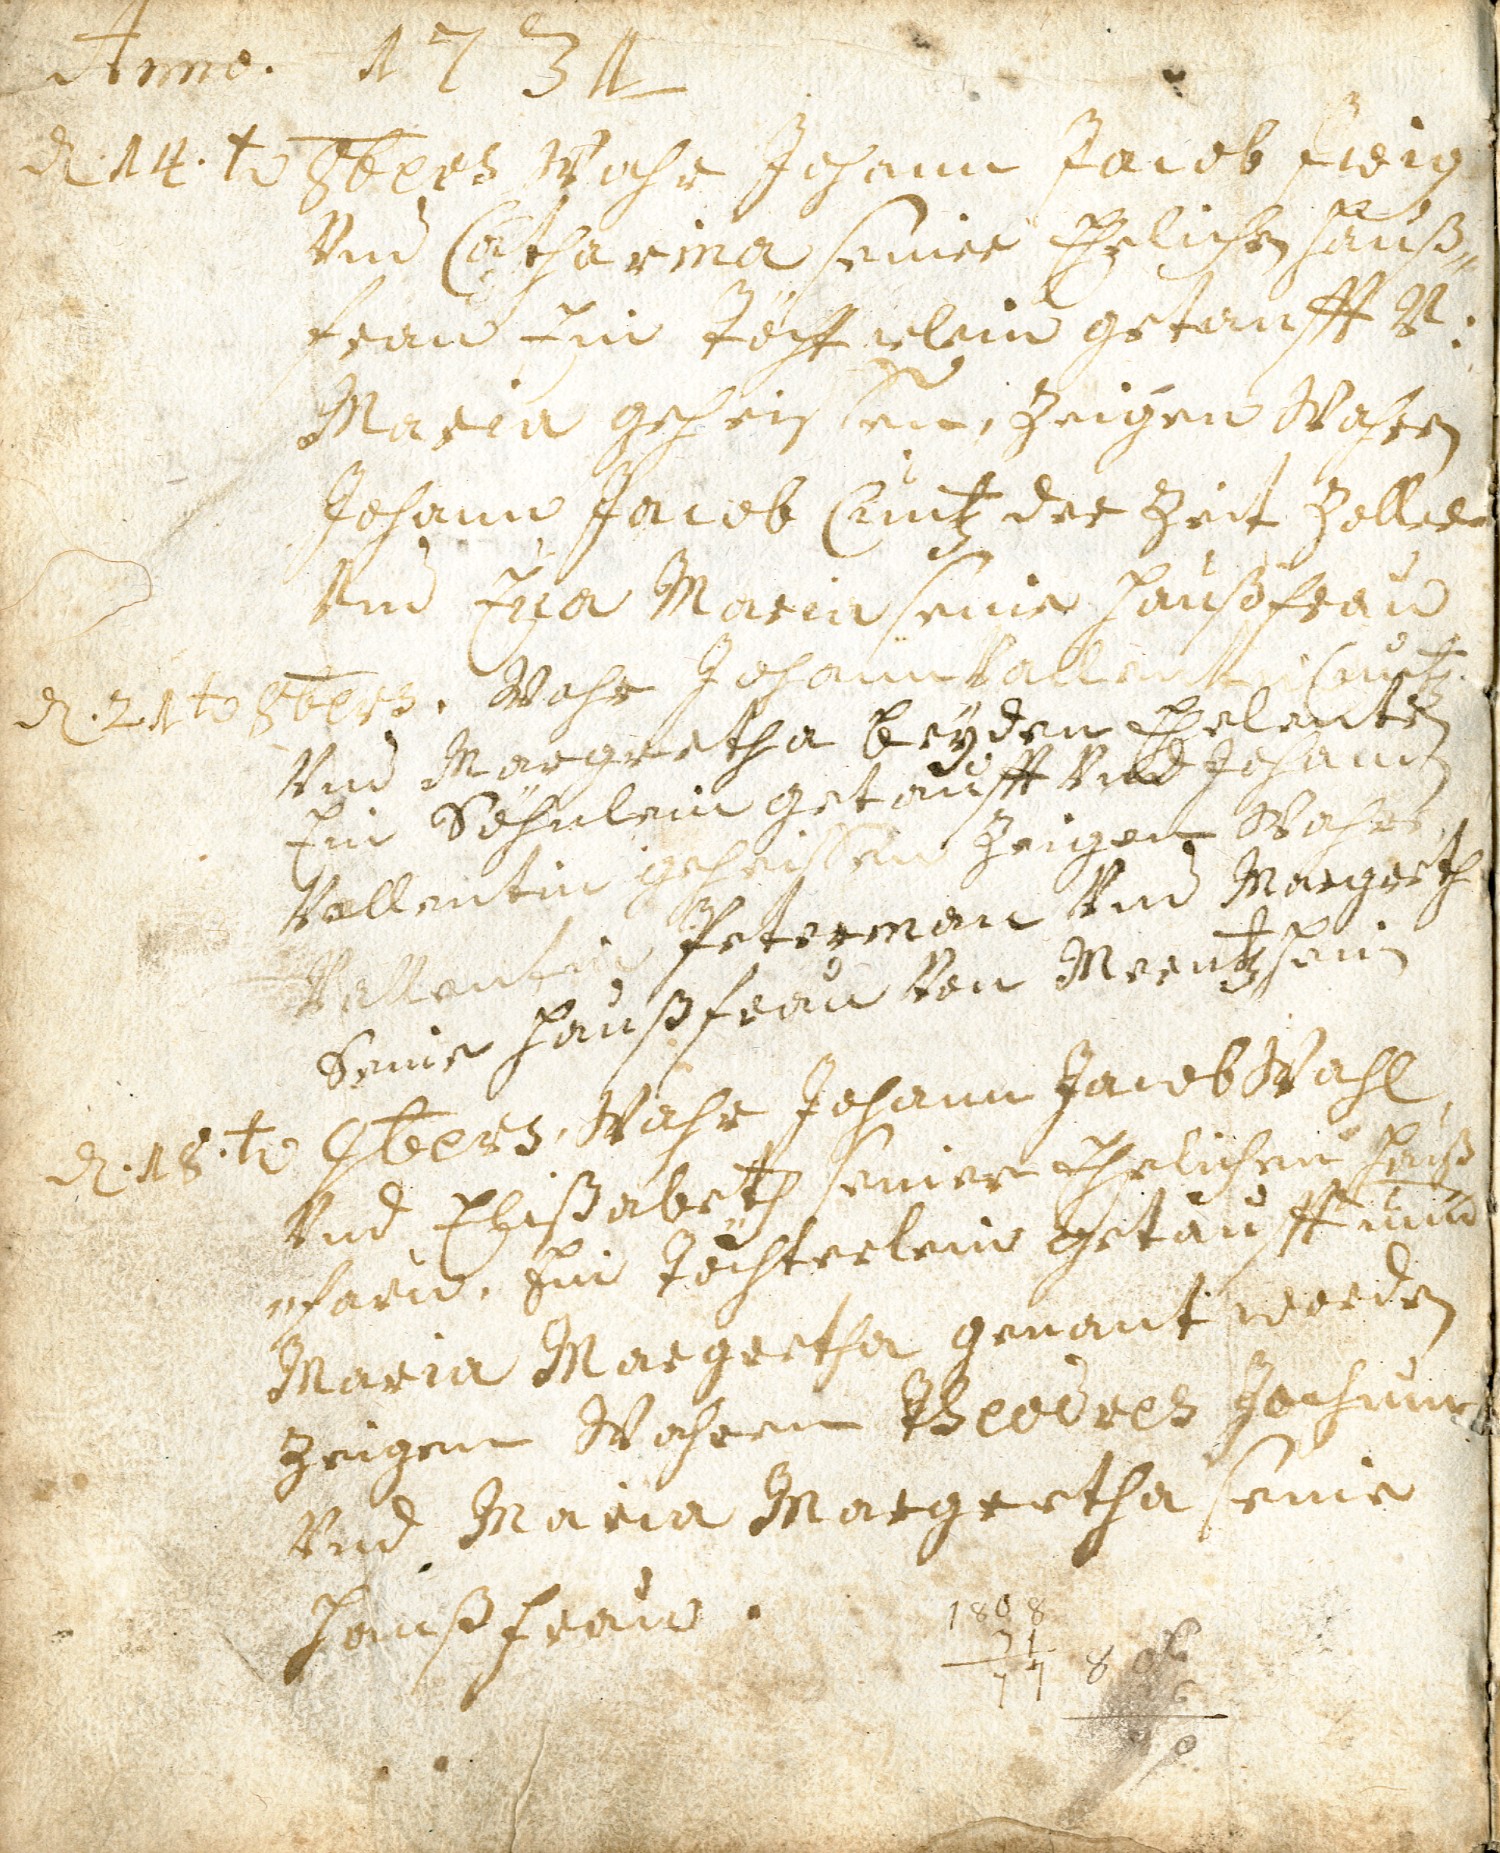 Anno. 1731
d. 14. to 8bers Wahr Johann Jacob
Vnd Catharina seiner Ehelichen Hauß„
frau Ein Töchterlein getaufft V:
Maria geheissen, Zeigen Wahren
Johann Jacob Cuntz der Zeit Zoller
Vnd Eva Maria seine Haußfrau
d. 21 to 8bers. Wahr Johann Vallentin Cuntz
Vnd Margretha beyden Eheleuten
Ein Söhnlein getaufft Vnd Johann
Vallentin geheissen Zeigen Wahre
Vallentin Peterman Vnd Margreth
Seine Haußfrau Von
d. 18. to 9bers. Wahr Johann Jacob Wahl
Vnd Elißabeth seiner Ehelichen Hauß
„frau. Ein Töchterlein getaufft und
Maria Margretha genant worden
Zeigen Wahren
Vnd Maria Margretha seine
Haußfrau.
1808
31
77 8